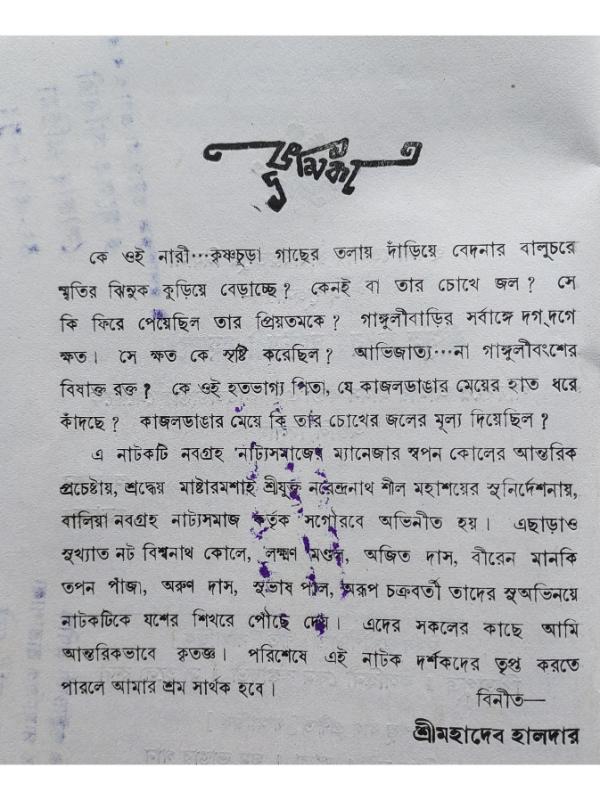 ভূমিকা
কে ওই নারী···কৃষ্ণচূড়া গাছের তলায় দাঁড়িয়ে বেদনার বালুচরে
স্মৃতির ঝিনুক কুড়িয়ে বেড়াচ্ছে? কেনই বা তার চোখে জল? সে
কি ফিরে পেয়েছিল তার প্রিয়তমকে? গাঙ্গুলীবাড়ির সর্বাঙ্গে দগ্‌দগে
ক্ষত। সে ক্ষত কে সৃষ্টি করেছিল? আভিজাত্য···না গাঙ্গুলীবংশের
বিষাক্ত রক্ত? কে ওই হতভাগ্য পিতা, যে কাজলডাঙার মেয়ের হাত ধরে
কাঁদছে? কাজলডাঙার মেয়ে কি তার চোখের জলের মূল্য দিয়েছিল?
এ নাটকটি নবগ্রহ নাট্যসমাজের ম্যানেজার স্বপন কোলের আন্তরিক
প্রচেষ্টায়, শ্রদ্ধেয় মাষ্টারমশাই শ্রীযুক্ত নরেন্দ্রনাথ শীল মহাশয়ের সুনির্দেশনায়,
বালিয়া নবগ্রহ নাট্যসমাজ কর্তৃক সগৌরবে অভিনীত হয়। এছাড়াও
সুখ্যাত নট বিশ্বনাথ কোলে, লক্ষ্মণ মণ্ডল, অজিত দাস, বীরেন মানকি
তপন পাঁজা, অরুণ দাস, সুভাষ পাল, অরূপ চক্রবর্তী তাদের সুঅভিনয়ে
নাটকটিকে যশের শিখরে পৌছে দেয়। এদের সকলের কাছে আমি
আন্তরিকভাবে কৃতজ্ঞ। পরিশেষে এই নাটক দর্শকদের তৃপ্ত করতে
পারলে আমার শ্রম সার্থক হবে।
বিনীত—
শ্রীমহাদেব হালদার